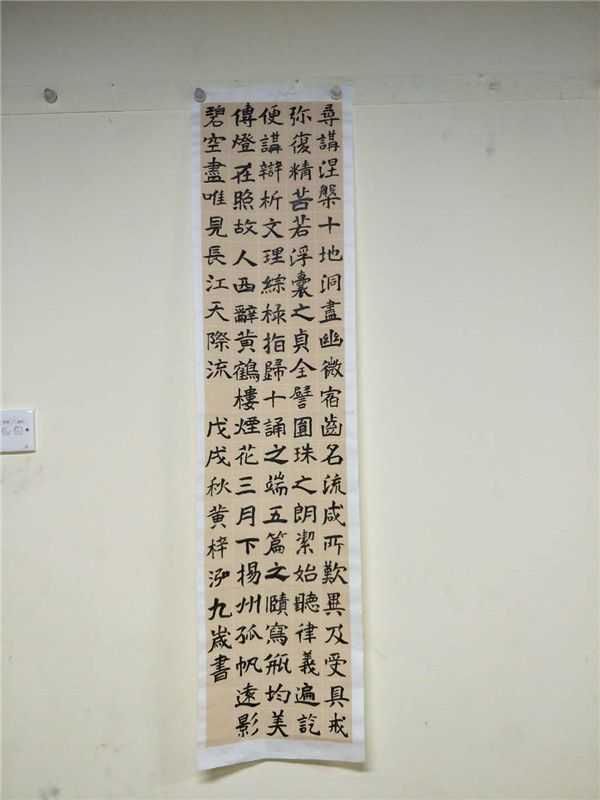 尋講涅槃十地洞盡幽微宿齒名流咸所歎異及受具戒
弥復精苦若浮囊之貞全譬圓珠之朗潔始聽律義遍訖
便講辯析文理綜核指歸十誦之端五篇之賾寫瓶均美
傳燈在照故人西辭黄鶴樓煙花三月下揚州孤帆遠影
碧空盡唯見長江天際流 戊戌秋黄梓泓九歲書